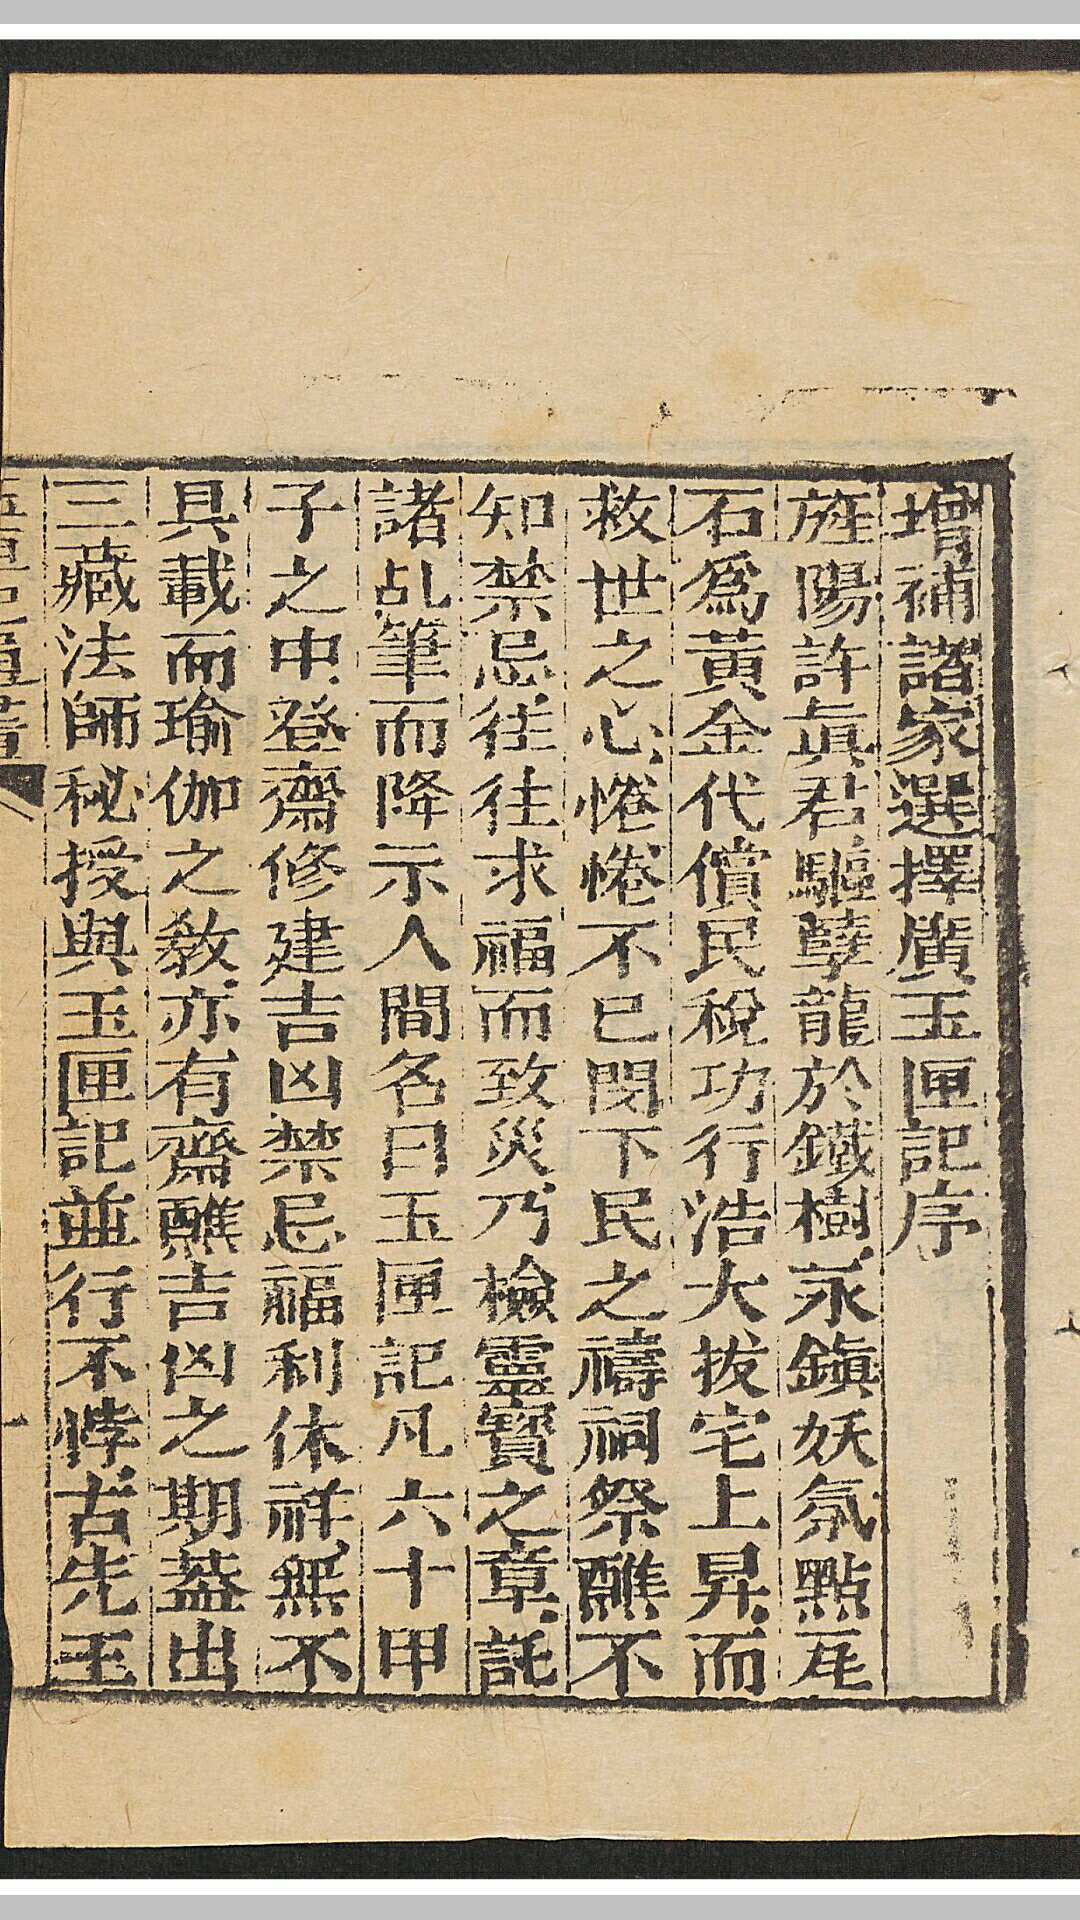 增補諸家選擇廣玉匣記序
旌陽許眞君驅孽龍於鐵樹永鎮妖氛點瓦
石爲黃金代償民稅功行浩大拔宅上昇而
救世之心惓惓不已閔下民之禱祠祭醮不
知禁忌徃徃求福而致災乃檢靈寳之章託
諸乩筆而降示人間名曰玉匣記凡六十甲
子之中登齋修建吉凶禁忌福利休祥無不
具載而瑜伽之敎亦有齋醮吉凶之期葢出
三藏法師秘授與玉匣記並行不悖古先王